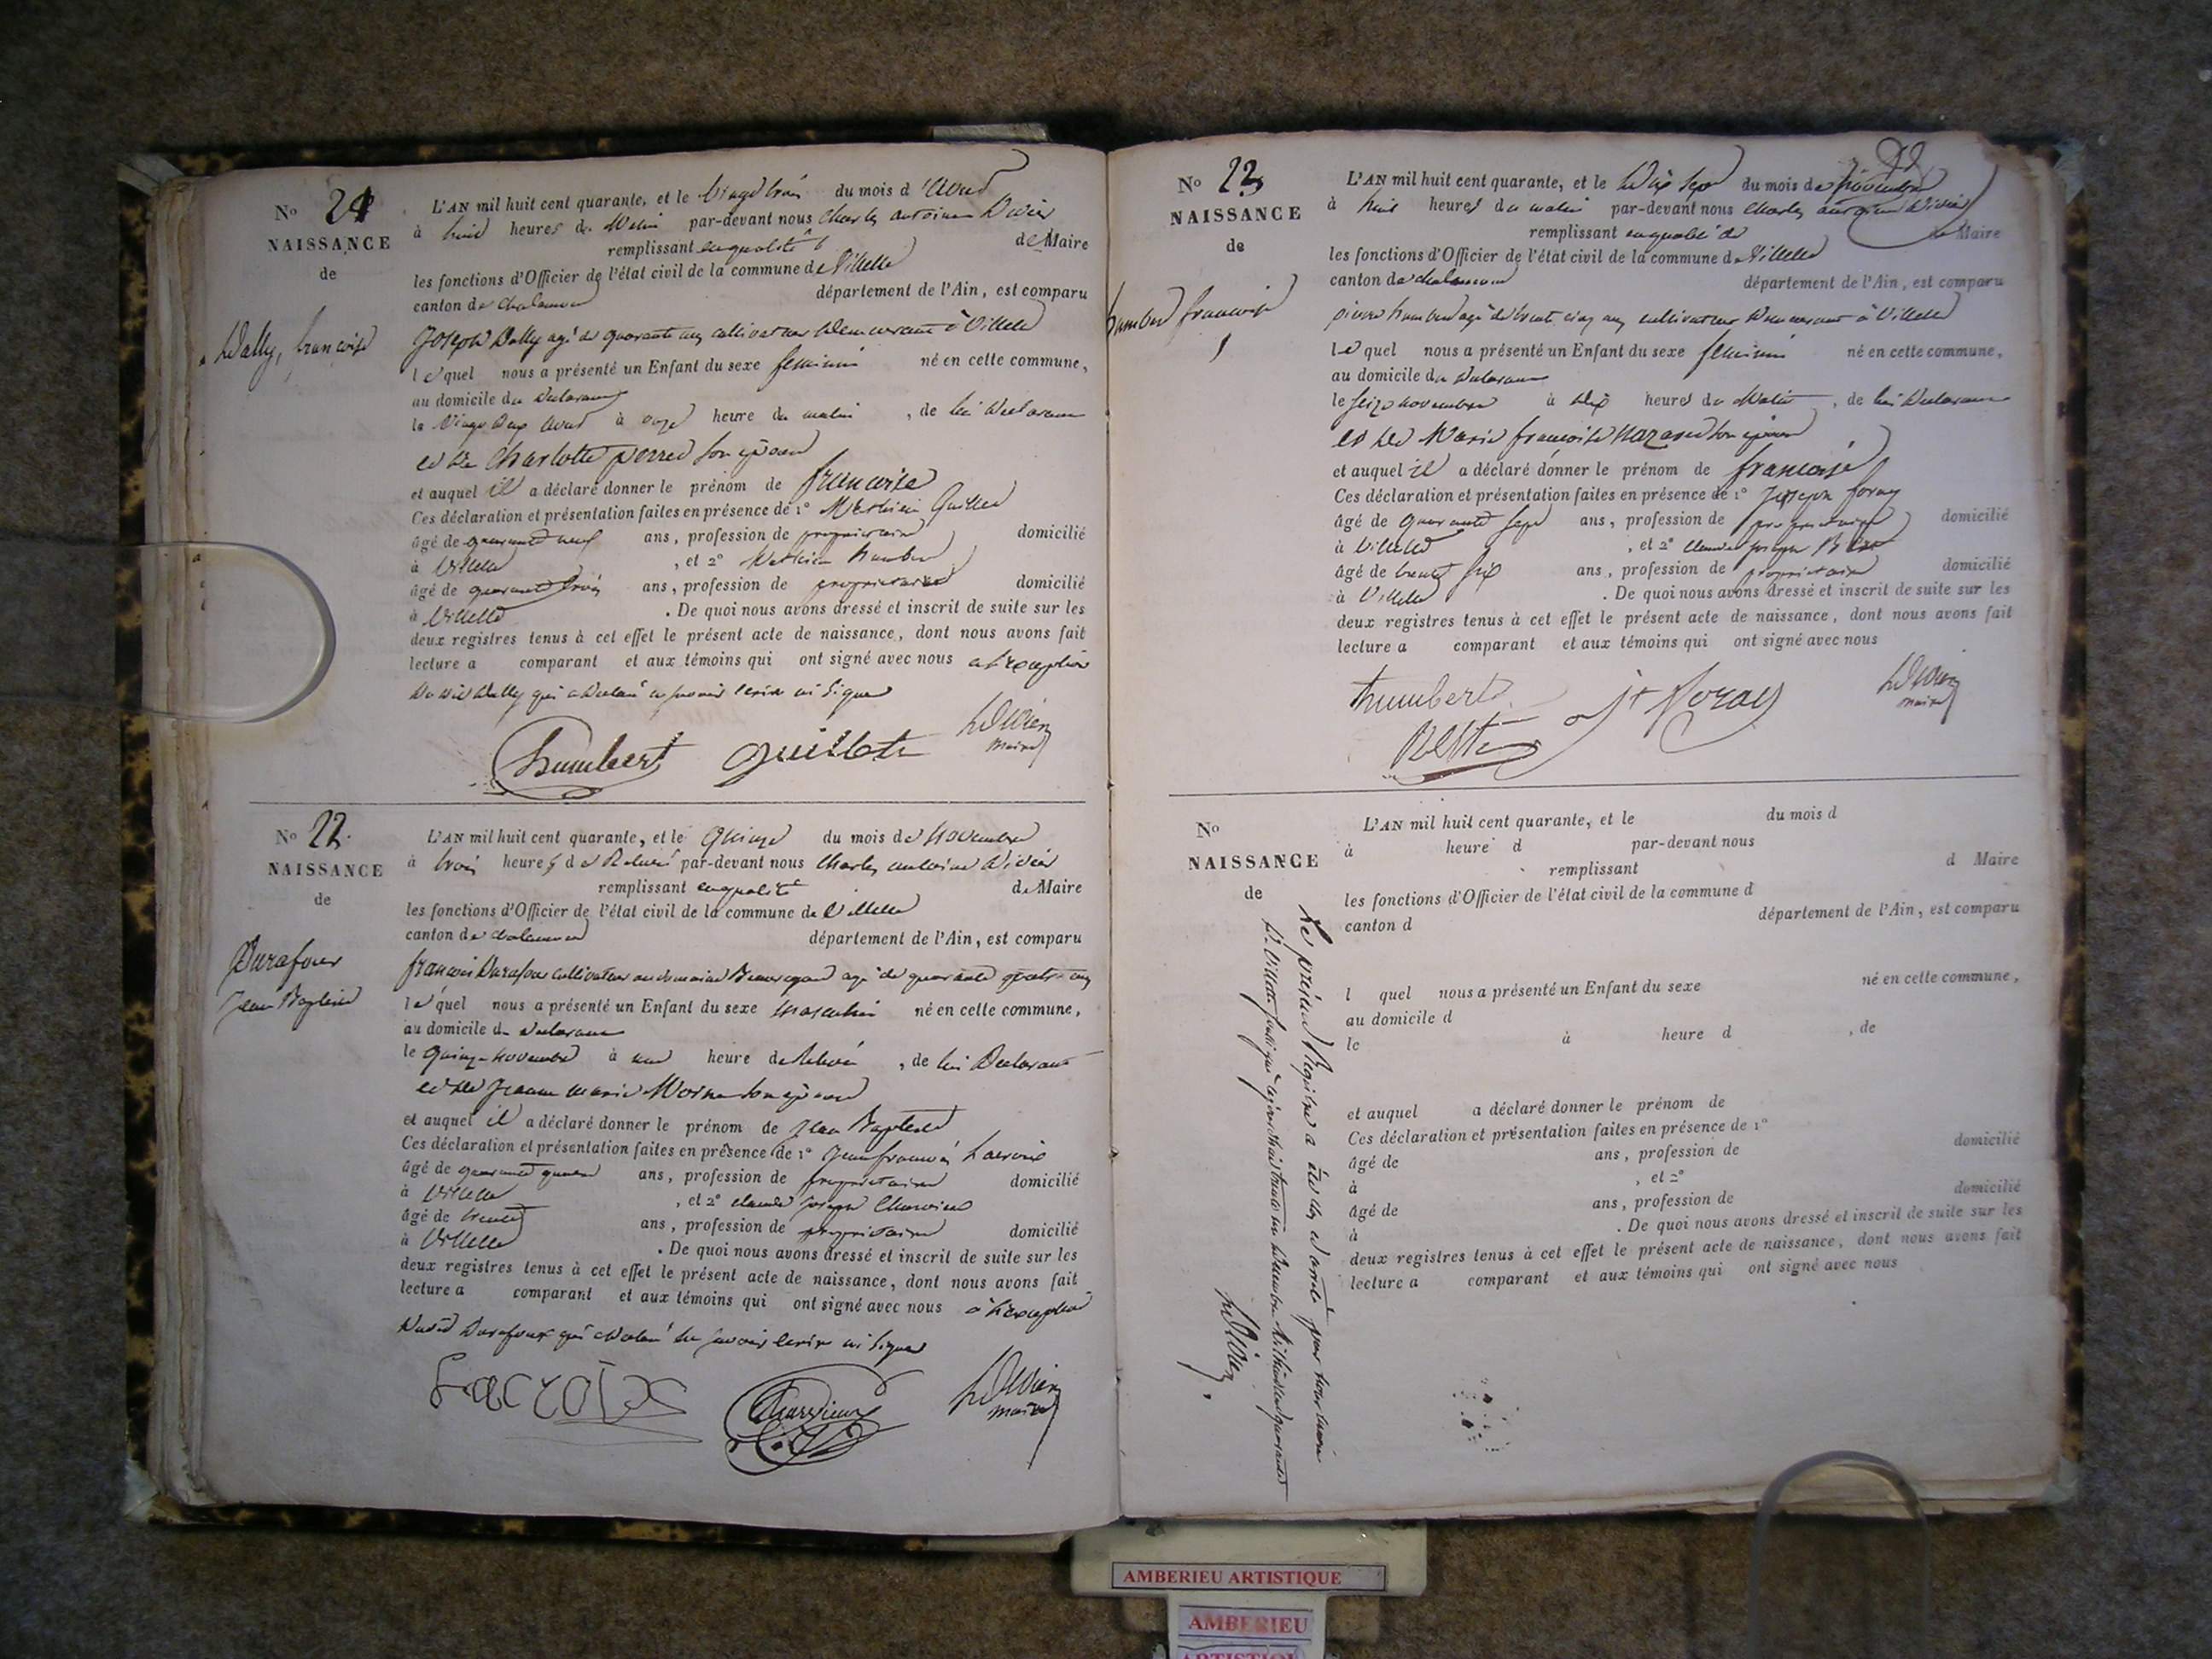 No 21
NAISSANCE
de
Dally, françoise
L'AN mil huit cent quarante, et le vingt trois du mois d'
à huit heures du Matin par-devant nous Charles antoine Divier
remplissant en qualité de Maire
les fonctions d'Officier de l'état civil de la commune de Villette
canton de chalamont département de l'Ain, est comparu
Joseph Dally agé de quarante ans cultivateur demeurant à Villette
lequel nous a présenté un Enfant du sexe feminin né en cette commune,
au domicile du declarant
le vingt deux à onze heure du matin, de lui declarant
et de Charlotte perret son épouse
et auquel il a déclaré donner le prénom de françoise
Ces déclaration et présentation faites en présence de 1º Mathieu
âgé de quarante neuf ans, profession de proprietaire domicilié
à Villette, et 2º Mathieu humbert
âgé de quarante trois ans, profession de proprietaire domicilié
à Villette. De quoi nous avons dressé et inscrit de suite sur les
deux registres tenus à cet effet le présent acte de naissance, dont nous avons fait
lecture a comparant et aux témoins qui ont signé avec nous a l'exception
du dit Dally qui a declaré ne savoir ecrire ni signer
humbert
maire
No 22.
NAISSANCE
de
Durafour
Jean Baptiste
L'AN mil huit cent quarante, et le quinze du mois de novembre
à trois heures de Relevé par-devant nous Charles antoine Divier
remplissant en qualité de Maire
les fonctions d'Officier de l'état civil de la commune de Villette
canton de chalamont département de l'Ain, est comparu
françois Durafour cultivateur au domaine Beauregard agé de quarante quatre ans
lequel nous a présenté un Enfant du sexe masculin né en cette commune,
au domicile du declarant
le quinze novembre à une heure de Relevé, de lui Declarant
et de jeanne marie son épouse
et auquel il a déclaré donner le prénom de jean Baptiste
Ces déclaration et présentation faites en présence de 1º jean françois Lacroix
âgé de quarante ans, profession de proprietaire domicilié
à Villette, et 2º claude joseph
âgé de trente ans, profession de proprietaire domicilié
à Villette. De quoi nous avons dressé et inscrit de suite sur les
deux registres tenus à cet effet le présent acte de naissance, dont nous avons fait
lecture a comparant et aux témoins qui ont signé avec nous a l'exception
du dit Durafour qui a declaré ne savoir ecrire ni signer
Lacroix
maire
No 23
NAISSANCE
de
humbert françoise
L'AN mil huit cent quarante, et le dix sept du mois de novembre
à huit heures du matin par-devant nous Charles antoine Divier
remplissant en qualité de Maire
les fonctions d'Officier de l'état civil de la commune de Villette
canton de chalamont département de l'Ain, est comparu
pierre humbert agé de trente cinq ans cultivateur demeurant à Villette
lequel nous a présenté un Enfant du sexe feminin né en cette commune,
au domicile du declarant
le seize novembre à dix heures du Matin, de lui declarant
et de Marie françoise son épouse
et auquel il a déclaré donner le prénom de françoise
Ces déclaration et présentation faites en présence de 1º joseph foray
âgé de quarante sept ans, profession de proprietaire domicilié
à Villette, et 2º claude joseph
âgé de trente six ans, profession de proprietaire domicilié
à Villette. De quoi nous avons dressé et inscrit de suite sur les
deux registres tenus à cet effet le présent acte de naissance, dont nous avons fait
lecture a comparant et aux témoins qui ont signé avec nous
humbert
jh foray
maire
No
NAISSANCE
de
L'AN mil huit cent quarante, et le du mois d
à heure d par-devant nous
remplissant d Maire
les fonctions d'Officier de l'état civil de la commune d
canton d département de l'Ain, est comparu
l quel nous a présenté un Enfant du sexe né en cette commune,
au domicile d
le à heure d, de
et auquel a déclaré donner le prénom de
Ces déclaration et présentation faites en présence de 1º
âgé de ans, profession de domicilié
à, et 2º
âgé de ans, profession de domicilié
à. De quoi nous avons dressé et inscrit de suite sur les
deux registres tenus à cet effet le présent acte de naissance, dont nous avons fait
lecture a comparant et aux témoins qui ont signé avec nous
Le présent Registre a été clos et arreté par nous maire
de Villette aujourd'hui trente un decembre mil huit cent quarante
AMBERIEU ARTISTIQUE
AMBERIEU
ARTISTIQUE